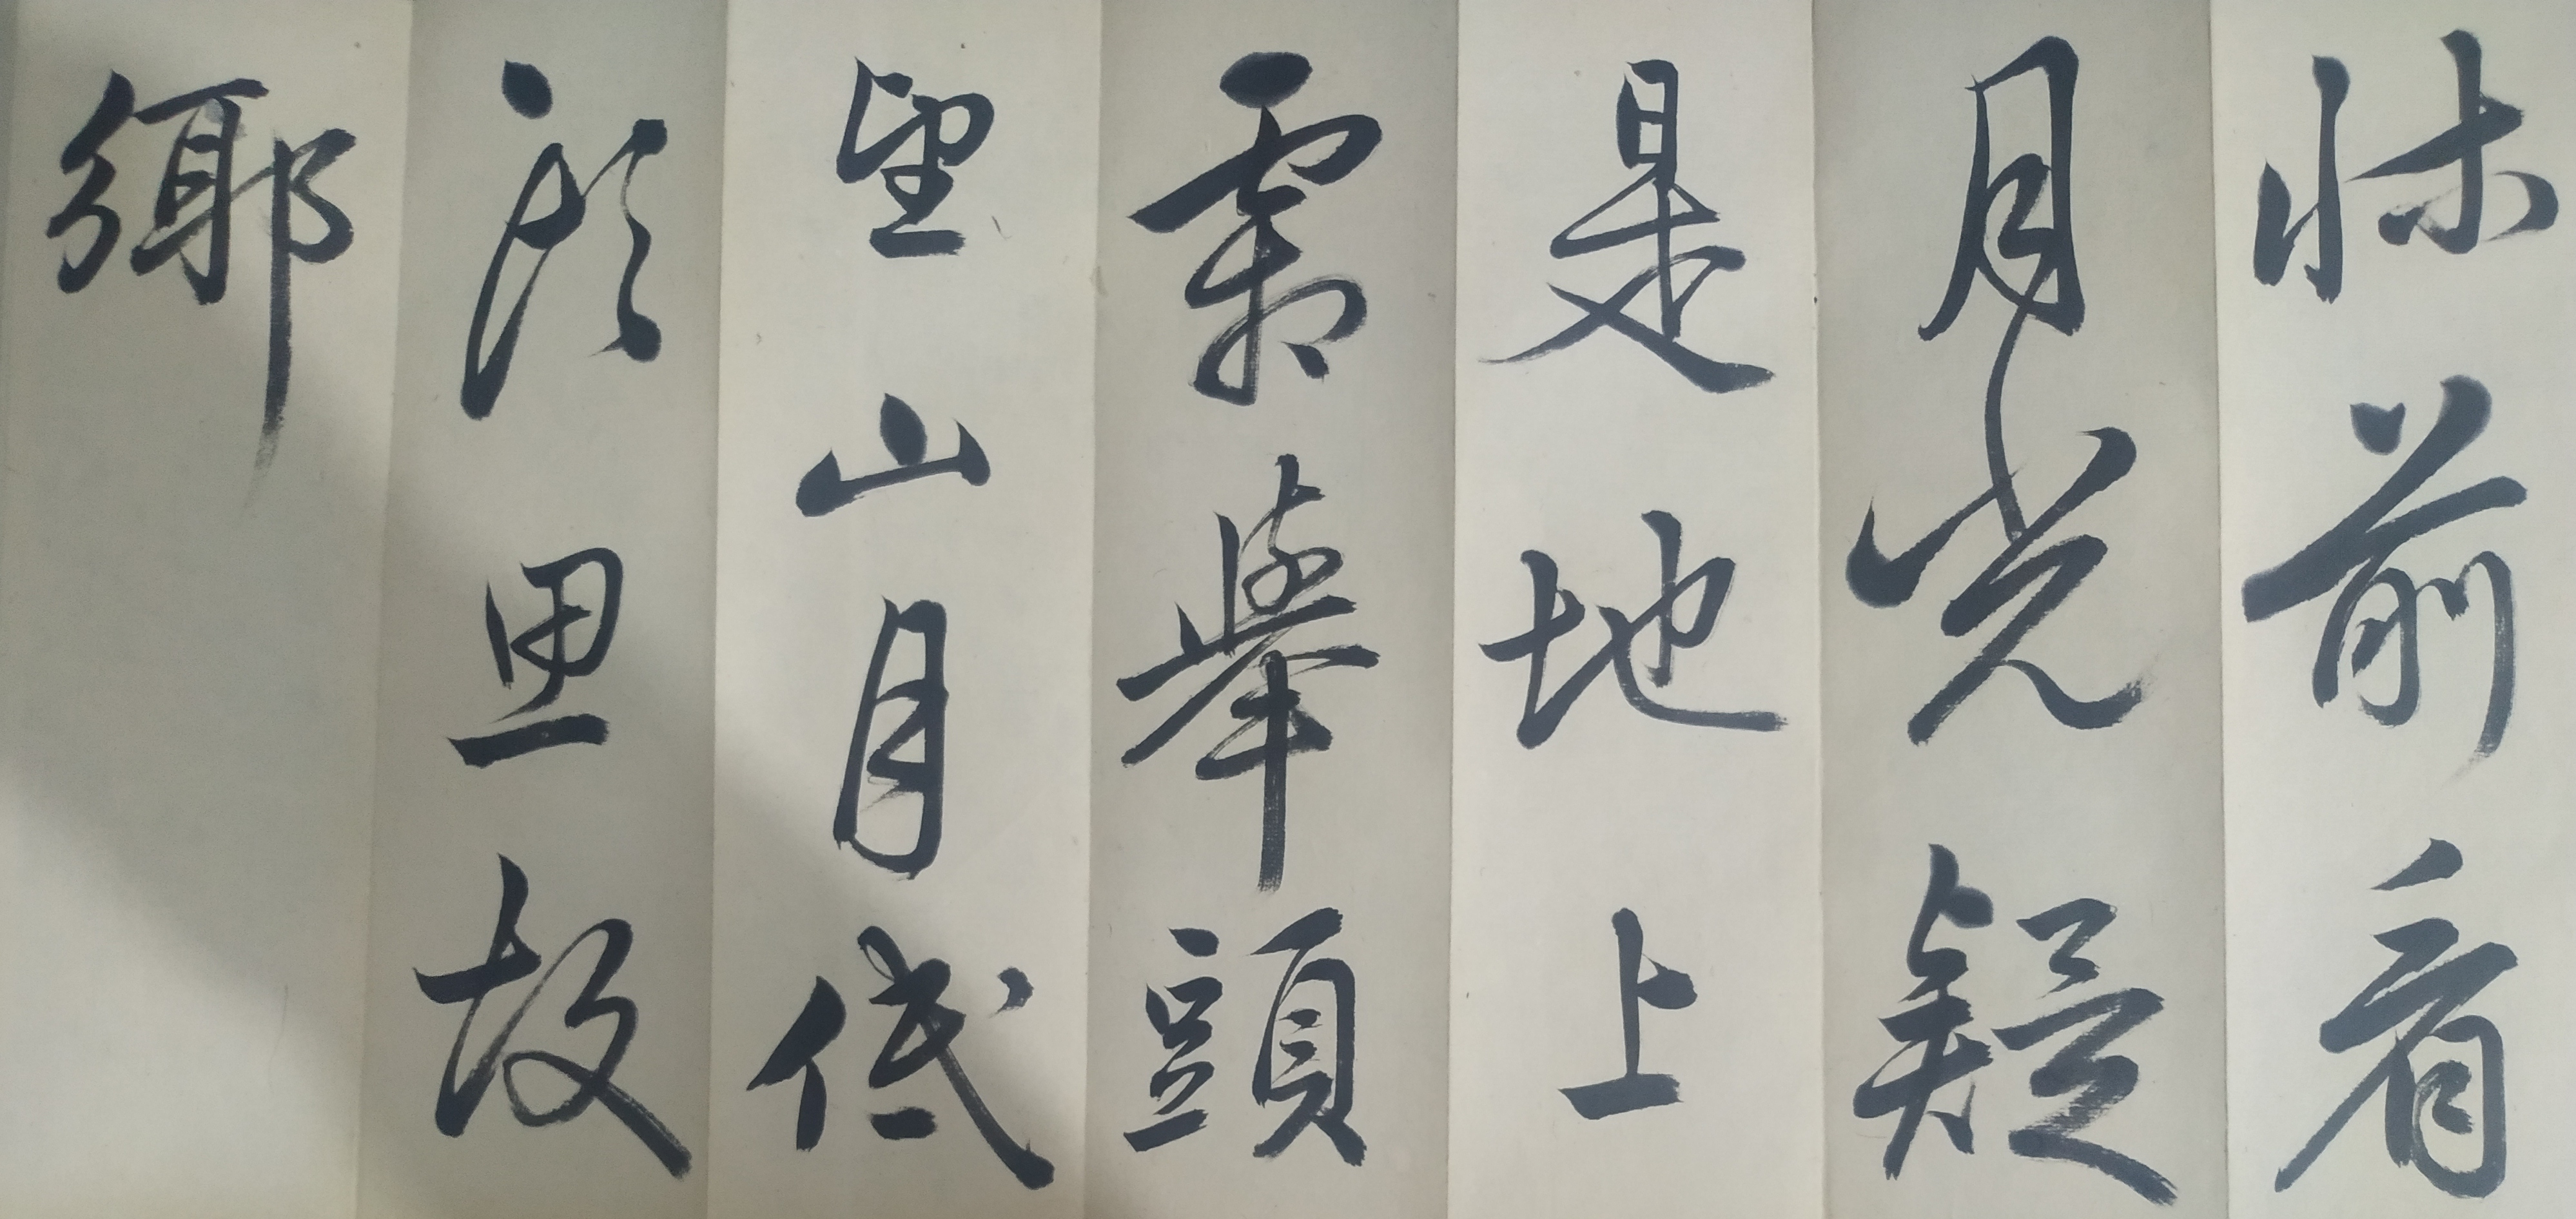 牀前看
月光疑
是地上
霜舉頭
望山月低
頭思故
鄉